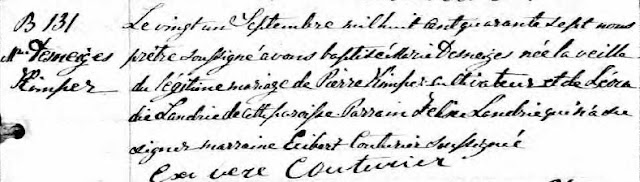 B 131
Mie Desneiges
Kimper
Le vingt un Septembre mil huit cent quarante sept nous
prêtre soussigné avons baptisé Marie Desneiges née la veille
du légitime mariage de Pierre Kimper cultivateur et de Léoca
die Landrie de cette paroisse Parrain Landrie qui n'a su
signer marraine Couturier soussigné
Couturier